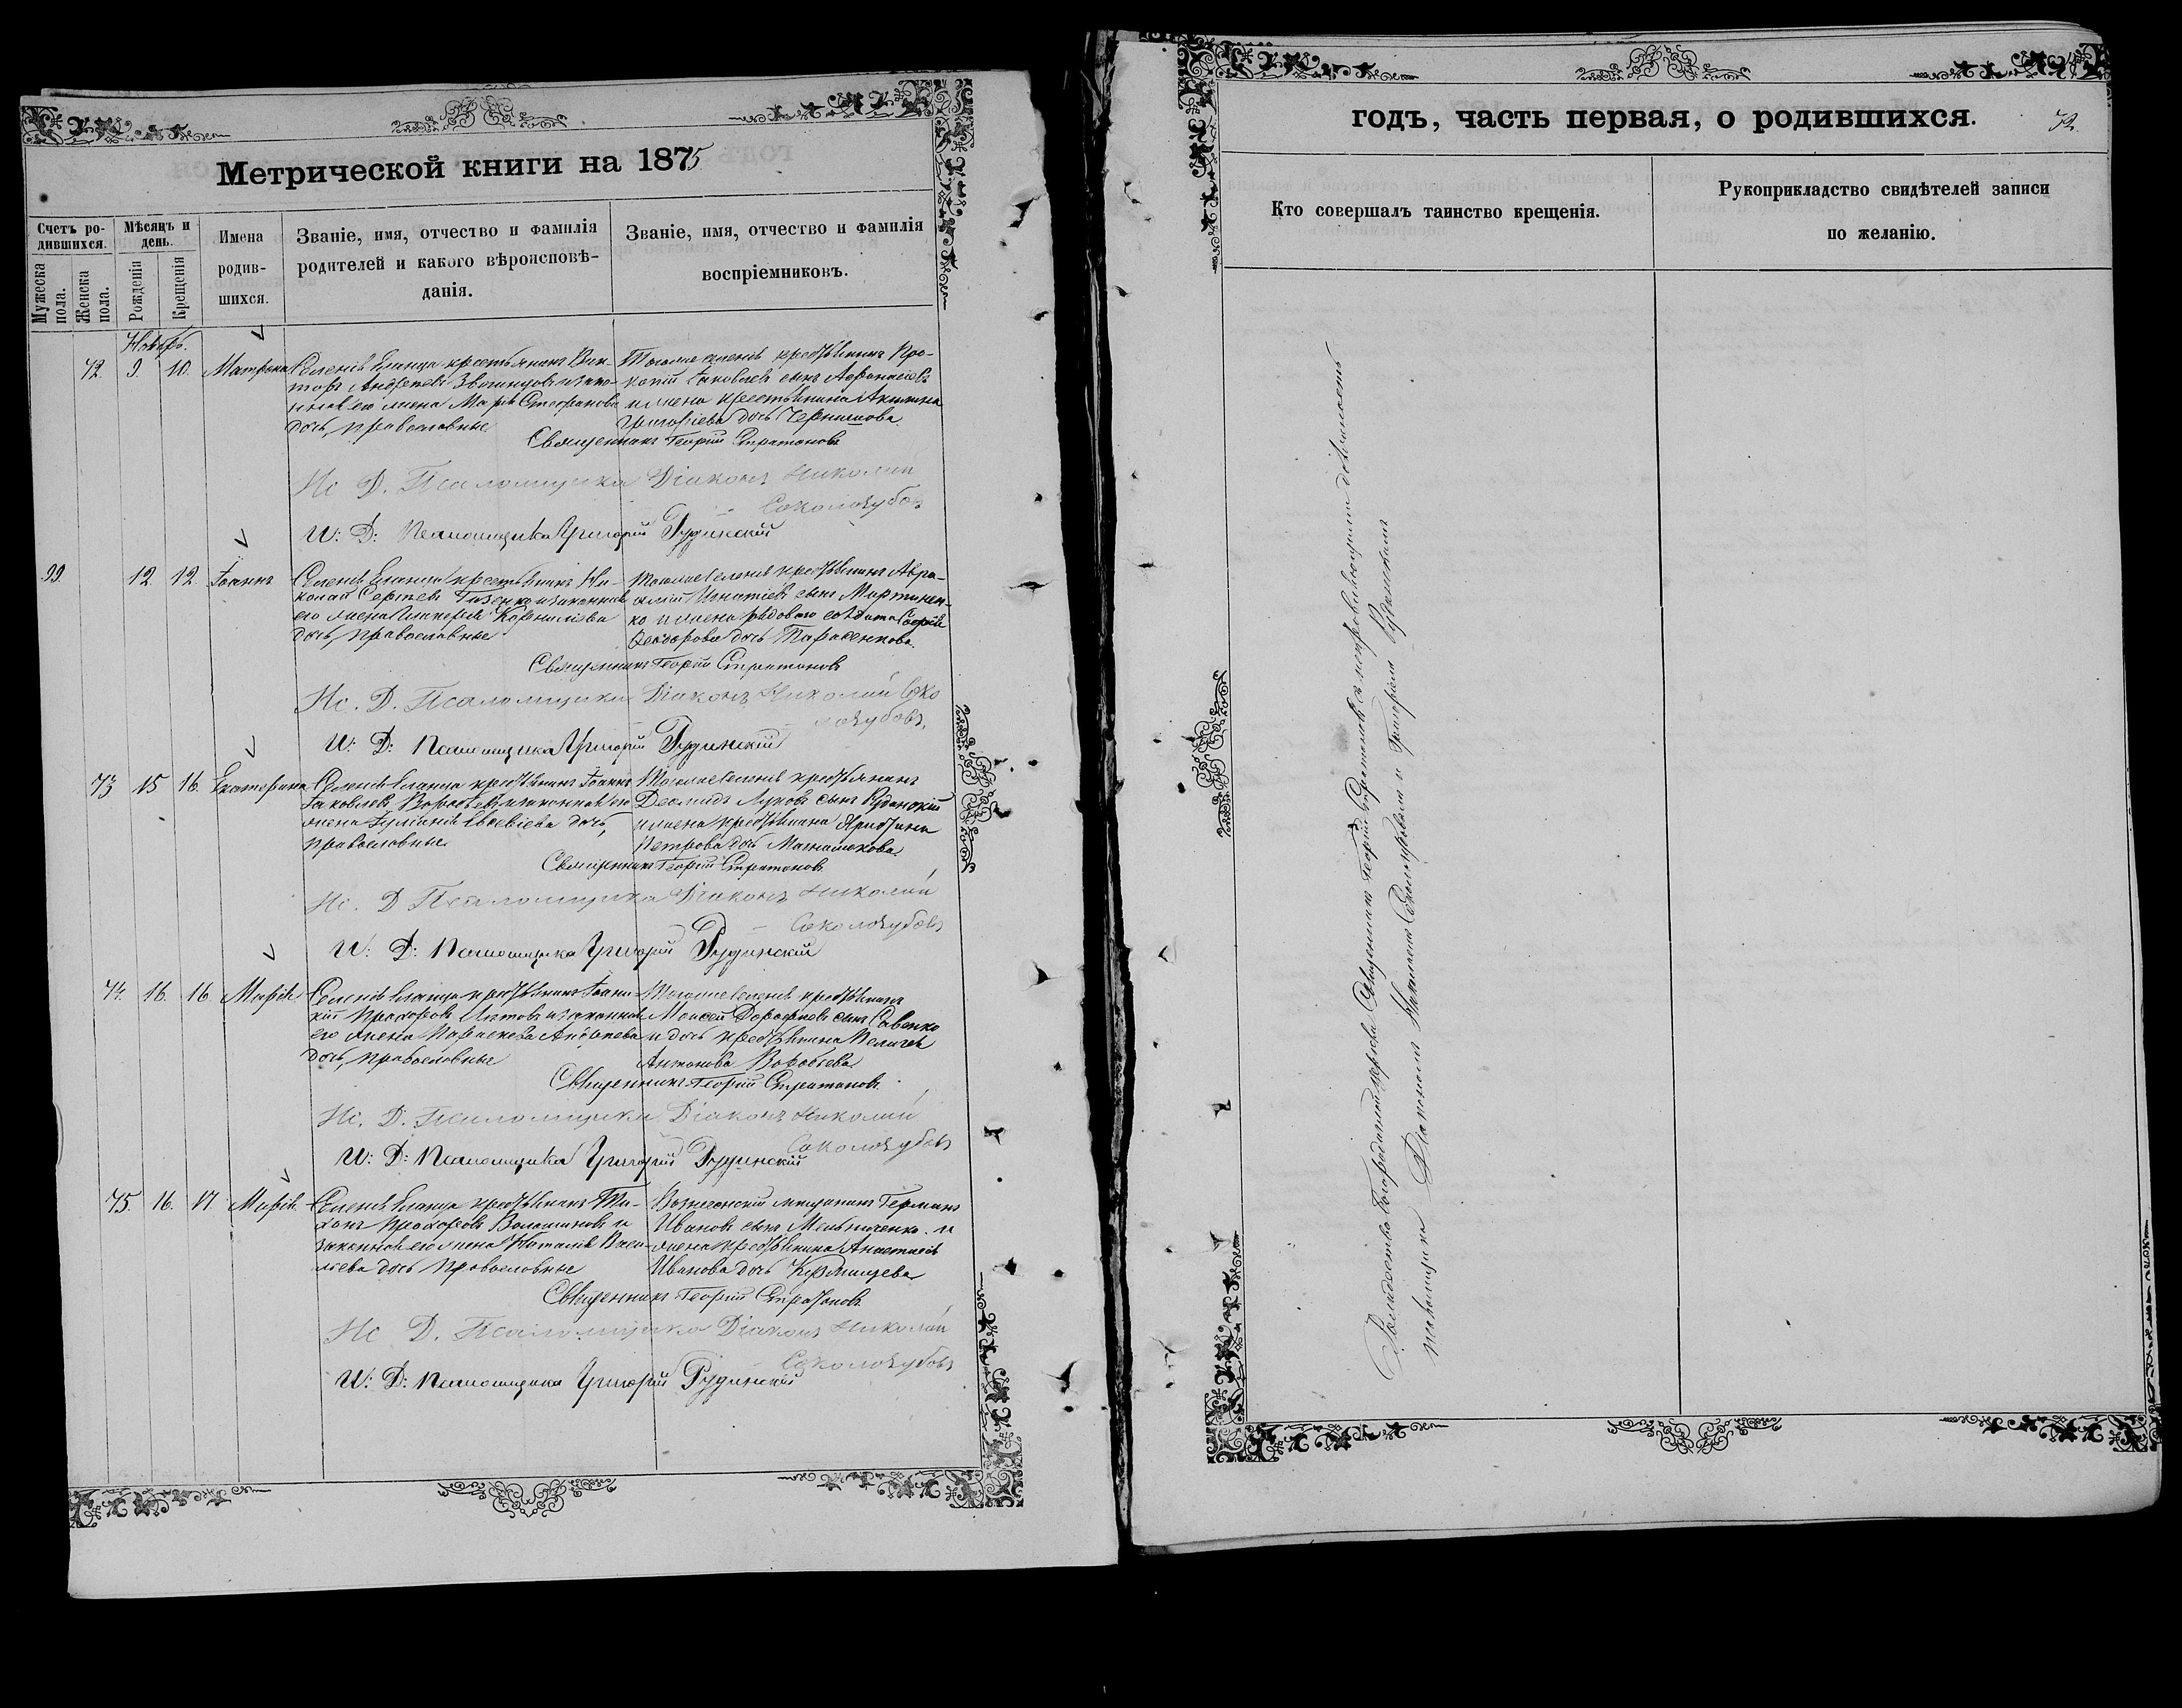 Метрической книги на 1875
Счетъ ро-
дившихся.
Мужеска
пола.
Женска
пола.
Мѣсяцъ и
день.
Рожденія
Крещенія
Имена
родив-
шихся.
Званіе, имя, отчество и фамилія
родителей и какого вѣроисповѣ-
данія.
Званіе, имя, отчество и фамилія
воспріемниковъ.
Ноябрь.
72. 9. 10. Матрона
Селенія Еланца крестьянинъ Вик-
торъ Андреевъ и закон-
ная его жена Марія Стефанова
дочь, православные
Тогоже селенія крестьянинъ Про-
копій Іаковлевъ сынъ Афанасіевъ
и жена крестьянина Акилина
Григоріева дочь Чернышова.
Священникъ Георгій Стратоновъ
Ис. Д. Псаломщика Діаконъ Николай
Соколозубовъ
И: Д: Псаломщика Григорій Рудинскій
99. 12. 12. Іоаннъ
Селенія Еланца крестьянинъ Ни-
колай Сергѣевъ и законная
его жена Гликерія Корнилієва
дочь, православные
Тогоже селенія крестьянинъ Авра-
амій Игнатіевъ сынъ Мартинен-
ко и жена рядового солдата Софія
Ѳеодорова дочь Тарасенкова.
Священникъ Георгій Стратоновъ
Ис. Д. Псаломщика Діаконъ Николай Соко
лозубовъ.
И: Д: Псаломщика Григорій Рудинскій
73 15 16. Екатерина
Селенія Еланца крестьянинъ Іоаннъ
Іаковлевъ Воробьевъ и законная его
жена Іуліанія Евсевіева дочь,
православные.
Тогоже селенія крестьянинъ
Діомидъ Луковъ сынъ
и жена крестьянина Христина
Петрова дочь
Священникъ Георгій Стратоновъ
Ис. Д Псаломщика Діаконъ Николай
Соколозубовъ
И: Д: Псаломщика Григорій Рудинскій
74. 16. 16. Марія.
Селенія Еланца крестьянинъ Іоанни-
кій Прохоровъ и законная
его жена Параскева Андреева
дочь, православные
Тогоже селенія крестьянинъ
Моисей Дорофеевъ сынъ Савенко
и дочь крестьянина Пелагея
Антонова Воробьева
Священникъ Георгій Стратоновъ.
Ис. Д. Псаломщика Діаконъ Николай
Соколозубовъ
И: Д: Псаломщика Григорій Рудинскій
75. 16. 17. Марія.
Селенія Еланца крестьянинъ Ти-
хонъ Прохоровъ Волошиновъ и
законная его жена Наталія Васи-
ліева дочь православные
Вознесенскій мѣщанинъ Германъ
Ивановъ сынъ Мельниченко и
жена крестьянина Анастасія
Иванова дочь
Священникъ Георгій Стратоновъ
Ис Д. Псаломщика Діаконъ Николай
Соколозубовъ
И: Д: Псаломщика Григорій Рудинскій
годъ, часть первая, о родившихся.
72
Кто совершалъ таинство крещенія.
Рукоприкладство свидѣтелей записи
по желанію.
Рождество Богородичной церкви Священникъ Георгій Стратоновъ съ исправляющими должность
псаломщика Діакономъ Николаемъ Соколозубовымъ и Григоріемъ Рудинскимъ